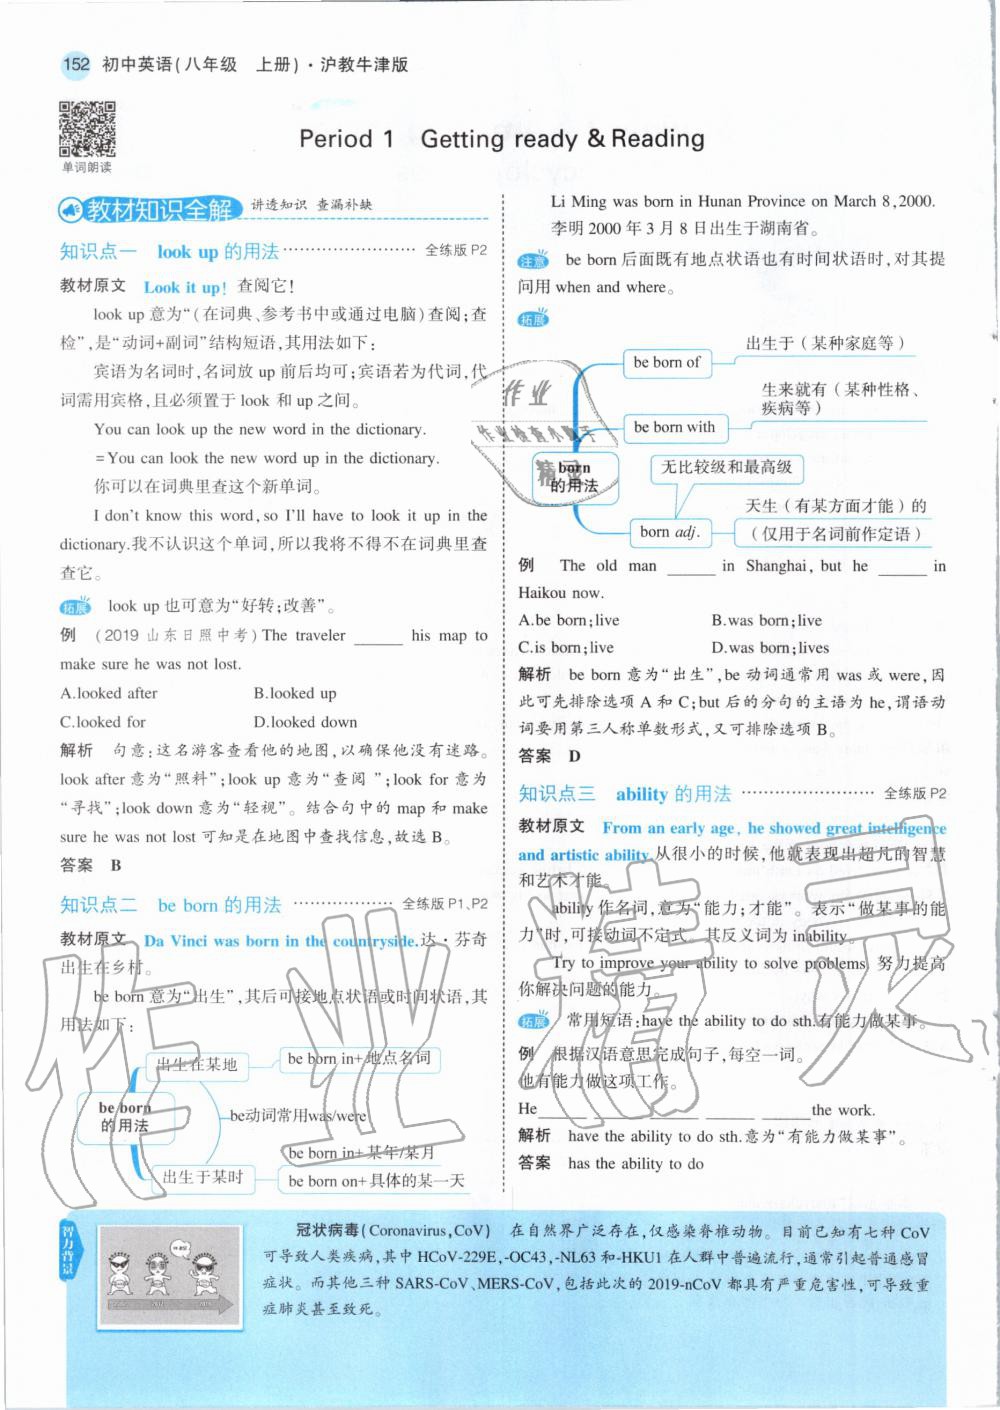 152 初中英语(八年级 上册)·沪教牛津版
单词朗读
Period 1 Getting ready & Reading
教材知识全解 讲透知识 查漏补缺
知识点一 look up 的用法 …………………… 全练版 P2
教材原文 Look it up! 查阅它!
look up 意为“(在词典、参考书中或通过电脑)查阅;查
检”,是“动词+副词”结构短语,其用法如下:
宾语为名词时,名词放 up 前后均可;宾语若为代词,代
词需用宾格,且必须置于 look 和 up 之间。
You can look up the new word in the dictionary.
=You can look the new word up in the dictionary.
你可以在词典里查这个新单词。
I don't know this word,so I'll have to look it up in the
dictionary.我不认识这个单词,所以我将不得不在词典里查
查它。
拓展 look up 也可意为“好转;改善”。
例 (2019 山东日照中考)The traveler ______ his map to
make sure he was not lost.
A.looked after B.looked up
C.looked for D.looked down
解析 句意:这名游客查看他的地图,以确保他没有迷路。
look after 意为“照料”;look up 意为“查阅 ”;look for 意为
“寻找”;look down 意为“轻视”。结合句中的 map 和 make
sure he was not lost 可知是在地图中查找信息,故选 B。
答案 B
知识点二 be born 的用法 ……………… 全练版 P1、P2
教材原文 Da Vinci was born in the countryside.达·芬奇
出生在乡村。
be born 意为“出生”,其后可接地点状语或时间状语,其
用法如下:
出生在某地
be born in+地点名词
be born
的用法
be动词常用was/were
出生于某时
be born in+某年/某月
be born on+具体的某一天
Li Ming was born in Hunan Province on March 8,2000.
李明 2000 年 3 月 8 日出生于湖南省。
注意 be born 后面既有地点状语也有时间状语时,对其提
问用 when and where。
拓展
be born of
出生于(某种家庭等)
be born with
生来就有(某种性格、
疾病等)
born
的用法
无比较级和最高级
born adj.
天生(有某方面才能)的
(仅用于名词前作定语)
例 The old man ______ in Shanghai, but he ______ in
Haikou now.
A.be born;live B.was born;live
C.is born;live D.was born;lives
解析 be born 意为“出生”,be 动词通常用 was 或 were,因
此可先排除选项 A 和 C;but 后的分句的主语为 he,谓语动
词要用第三人称单数形式,又可排除选项 B。
答案 D
知识点三 ability 的用法 …………………… 全练版 P2
教材原文 From an early age, he showed great intelligence
and artistic ability.从很小的时候,他就表现出超凡的智慧
和艺术才能。
ability 作名词,意为“能力;才能”。表示“做某事的能
力”时,可接动词不定式。其反义词为 inability。
Try to improve your ability to solve problems. 努力提高
你解决问题的能力。
拓展 常用短语:have the ability to do sth.有能力做某事。
例 根据汉语意思完成句子,每空一词。
他有能力做这项工作。
He______ ______ ______ ______ ______the work.
解析 have the ability to do sth.意为“有能力做某事”。
答案 has the ability to do
智力背景
冠状病毒(Coronavirus,CoV) 在自然界广泛存在,仅感染脊椎动物。目前已知有七种 CoV
可导致人类疾病,其中 HCoV-229E,-OC43,-NL63 和-HKU1 在人群中普遍流行,通常引起普通感冒
症状。而其他三种 SARS-CoV、MERS-CoV,包括此次的 2019-nCoV 都具有严重危害性,可导致重
症肺炎甚至致死。
作业
作业检查小帮手
精灵
作业精灵